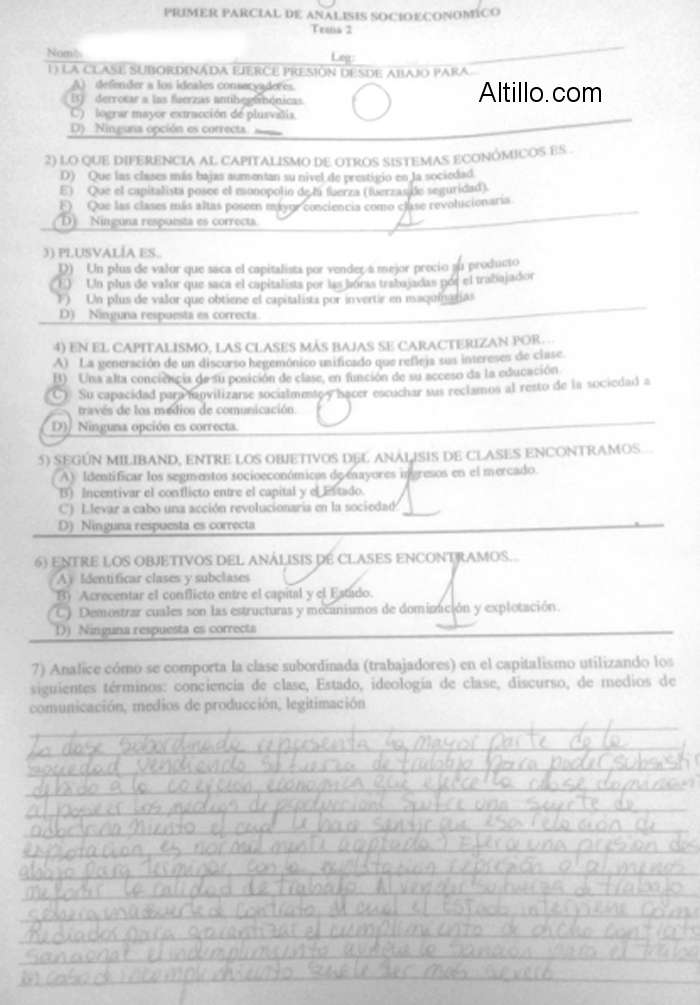 PRIMER PARCIAL DE ANALISIS SOCIOECONOMICO
Tema 2
Nomb
Leg:
Altillo.com
1) LA CLASE SUBORDINADA EJERCE PRESIÓN DESDE ABAJO PARA...
A) defender a los ideales conservadores.
B) derrotar a las fuerzas antihegemónicas.
C) lograr mayor extracción de plusvalía.
D) Ninguna opción es correcta.
2) LO QUE DIFERENCIA AL CAPITALISMO DE OTROS SISTEMAS ECONÓMICOS ES..
D) Que las clases más bajas aumentan su nivel de prestigio en la sociedad.
E) Que el capitalista posee el monopolio de la fuerza (fuerzas de seguridad).
F) Que las clases más altas poseen mayor conciencia como clase revolucionaria.
D) Ninguna respuesta es correcta.
1
3) PLUSVALÍA ES..
D) Un plus de valor que saca el capitalista por vender a mejor precio su producto
E) Un plus de valor que saca el capitalista por las horas trabajadas por el trabajador
F) Un plus de valor que obtiene el capitalista por invertir en maquinarias
D) Ninguna respuesta es correcta.
1
4) EN EL CAPITALISMO, LAS CLASES MÁS BAJAS SE CARACTERIZAN POR...
A) La generación de un discurso hegemónico unificado que refleja sus intereses de clase.
B) Una alta conciencia de su posición de clase, en función de su acceso da la educación.
C) Su capacidad para movilizarse socialmente y hacer escuchar sus reclamos al resto de la sociedad a
través de los medios de comunicación.
D) Ninguna opción es correcta.
5) SEGÚN MILIBAND, ENTRE LOS OBJETIVOS DEL ANÁLISIS DE CLASES ENCONTRAMOS...
A) Identificar los segmentos socioeconómicos de mayores ingresos en el mercado.
B) Incentivar el conflicto entre el capital y el Estado.
C) Llevar a cabo una acción revolucionaria en la sociedad
D) Ninguna respuesta es correcta
1
6) ENTRE LOS OBJETIVOS DEL ANÁLISIS DE CLASES ENCONTRAMOS...
A) Identificar clases y subclases
B) Acrecentar el conflicto entre el capital y el Estado.
C) Demostrar cuales son las estructuras y mecanismos de dominación y explotación.
D) Ninguna respuesta es correcta
1
7) Analice cómo se comporta la clase subordinada (trabajadores) en el capitalismo utilizando los
siguientes términos: conciencia de clase, Estado, ideología de clase, discurso, de medios de
comunicación, medios de producción, legitimación
La clase subordinada representa la mayor parte de la
sociedad vendiendo su fuerza de trabajo para poder subsistir
debido a la coercion economica que ejerce la clase dominante
al poseer los medios de produccion. Sufre una suerte de
adoctrinamiento el cual le hace sentir que esa relacion de
explotacion es normalmente aceptada. Ejerce una presion des
abajo para terminar con la represion o al menos
mejorar la calidad de trabajo. Al vender su fuerza de trabajo
genera una suerte de contrato al cual el Estado interviene como
mediador para garantizar el cumplimiento de dicho contrato
sancionar el incumplimiento aunque la sancion para el trabaj
en caso de incumplimiento suele ser mas severa